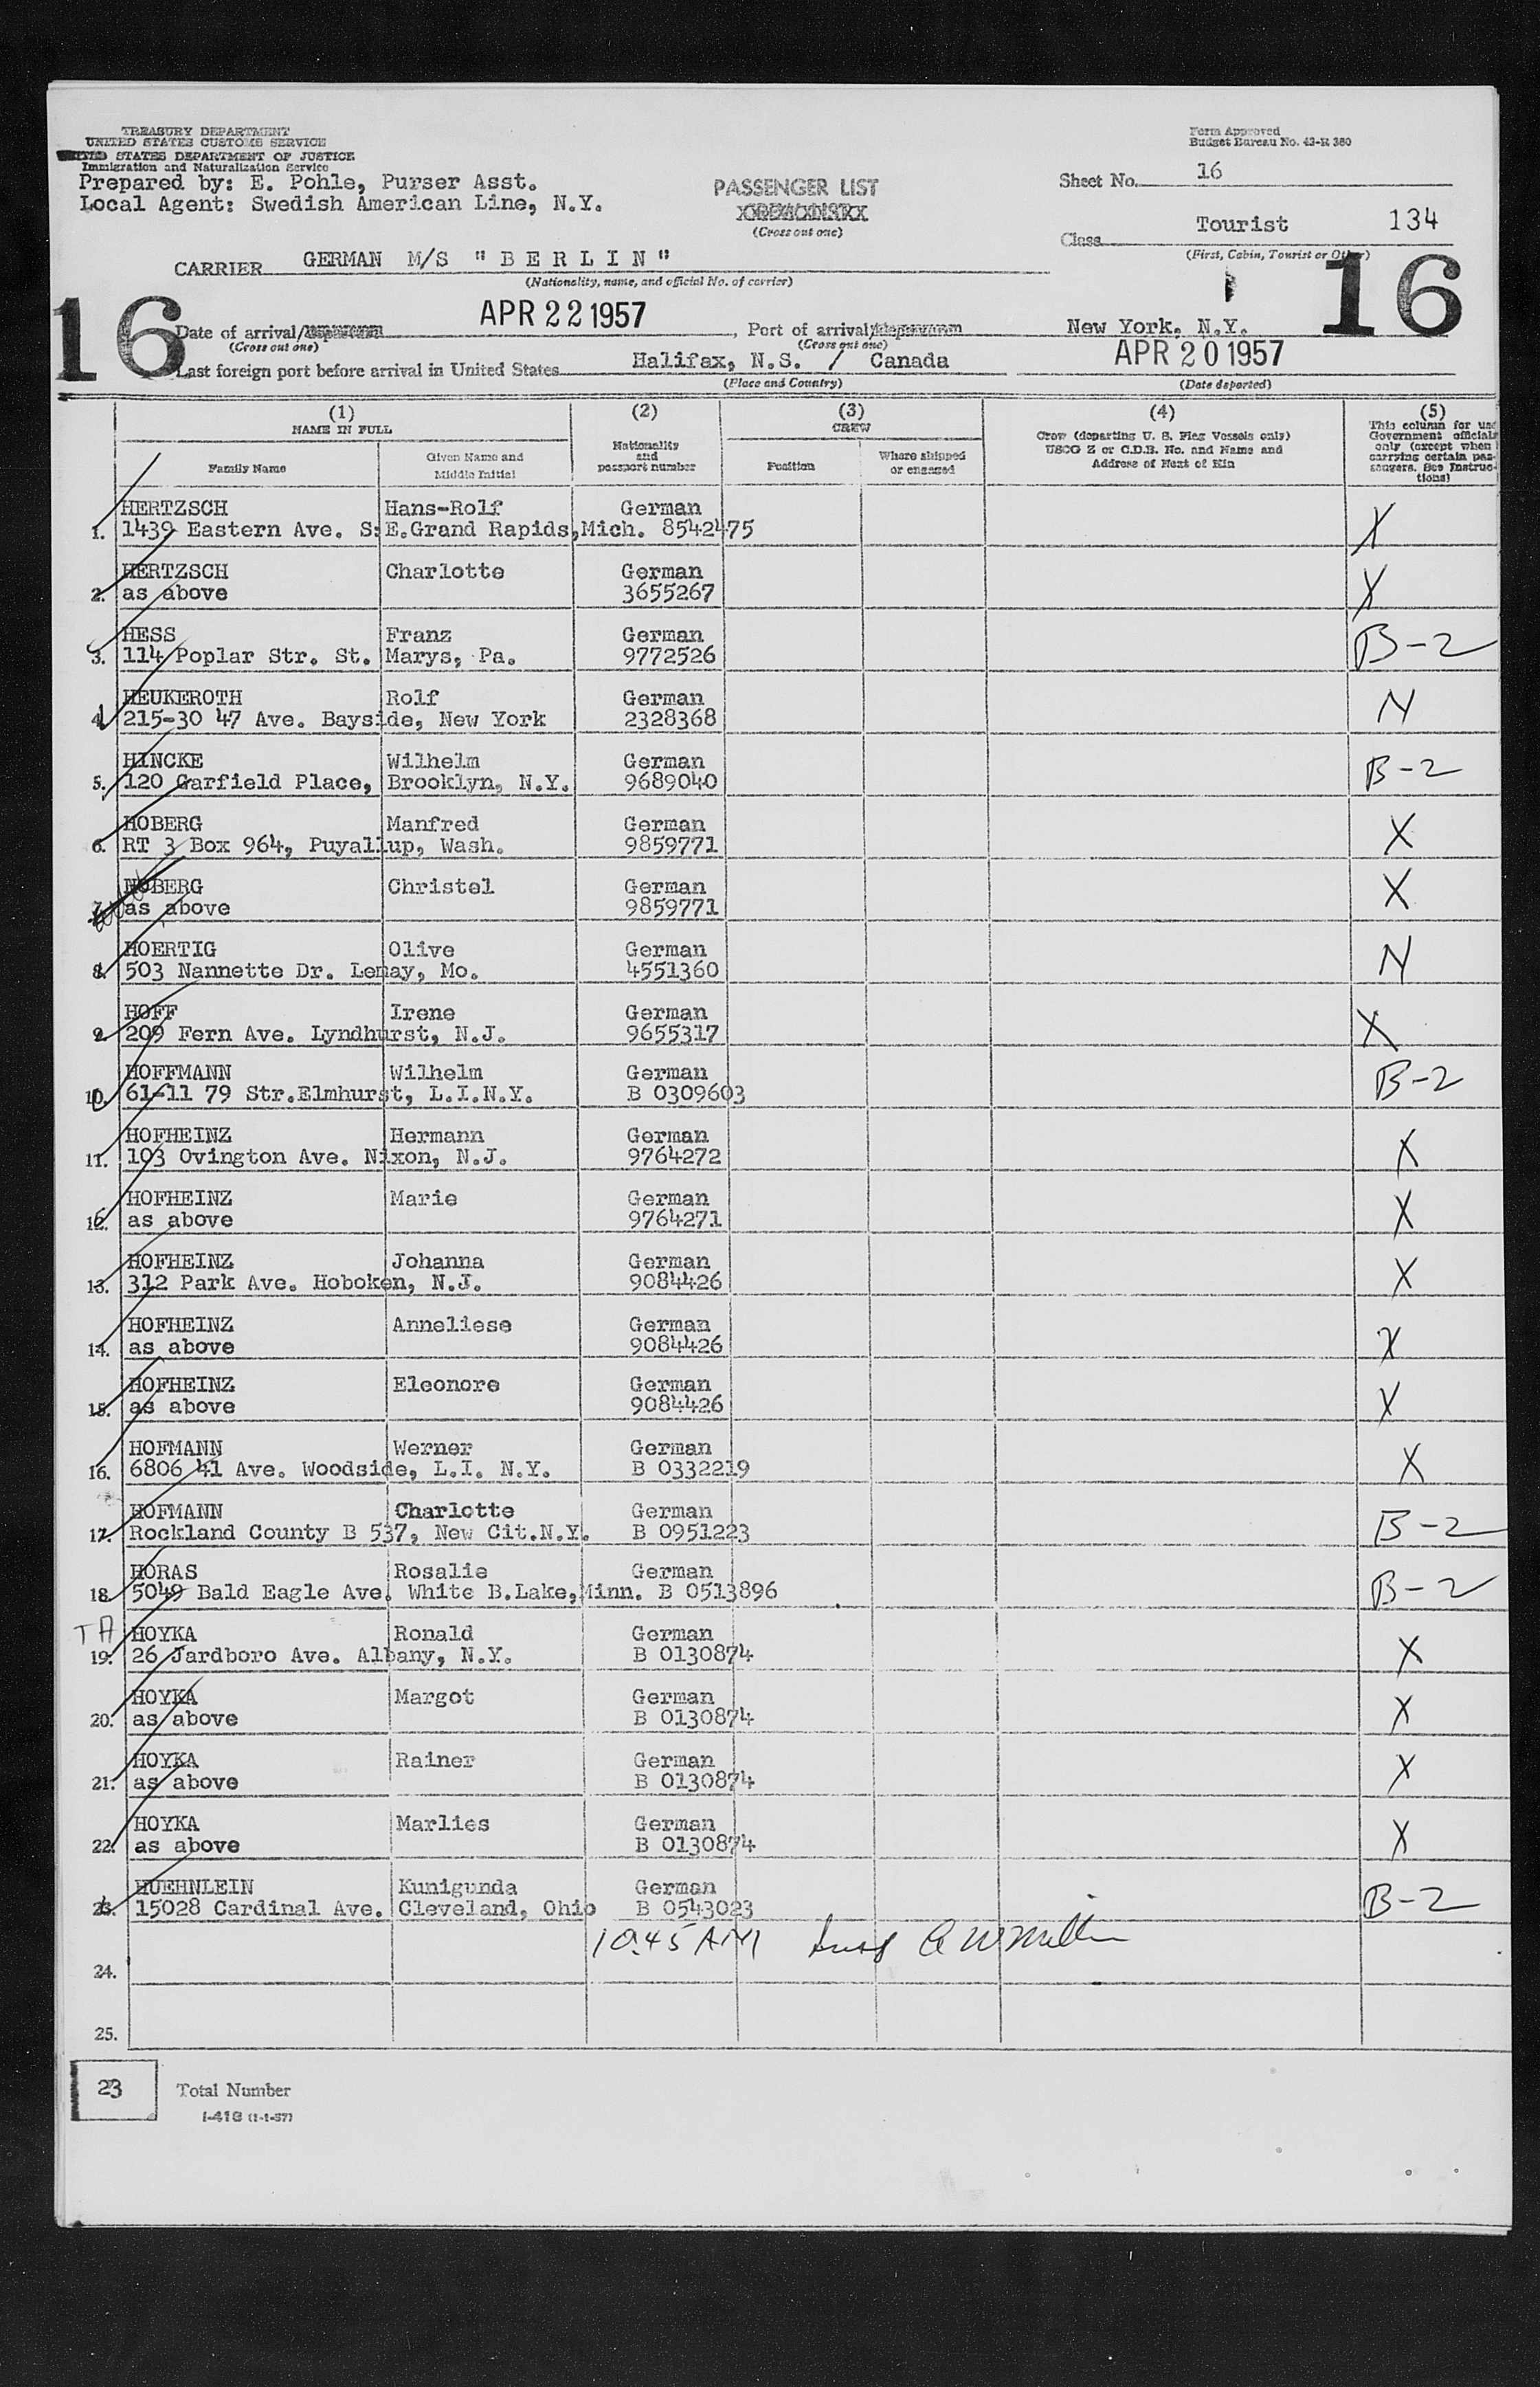 TREASURY DEPARTMENT
UNITED STATES CUSTOMS SERVICE
UNITED STATES DEPARTMENT OF JUSTICE
Immigration and Naturalization Service
Prepared by: E. Pohle, Purser Asst.
Local Agent: Swedish American Line, N.Y.
PASSENGER LIST
(Cross out one)
Form Approved
Budget Bureau No. 43-R 360
Sheet No. 16
Class Tourist 134
(First, Cabin, Tourist or Other)
CARRIER GERMAN M/S "BERLIN"
(Nationality, name, and official No. of carrier)
16
16
Date of arrival/ APR 22 1957, Port of arrival/ New York. N.Y.
(Cross out one) (Cross out one)
Last foreign port before arrival in United States Halifax, N.S. / Canada APR 20 1957
(Place and Country) (Date departed)
(1) (2) (3) (4) (5)
NAME IN FULL
Family Name
Given Name and Middle Initial
Nationality and passport number
CREW
Position
Where shipped or engaged
Crew (departing U. S. Flag Vessels only)
USCG Z or C.D.B. No. and Name and
Address of Next of Kin
This column for use
Government officials
only (except when
carrying certain pas-
sengers. See Instruc-
tions)
HERTZSCH Hans-Rolf German
1. 1439 Eastern Ave. S:E.Grand Rapids,Mich. 8542475 X
HERTZSCH Charlotte German
2. as above 3655267 X
HESS Franz German
3. 114 Poplar Str. St. Marys, Pa. 9772526 B-2
HEUKEROTH Rolf German
4. 215-30 47 Ave. Bayside, New York 2328368 N
HINCKE Wilhelm German
5. 120 Garfield Place, Brooklyn, N.Y. 9689040 B-2
HOBERG Manfred German
6. RT 3 Box 964, Puyallup, Wash. 9859771 X
HOBERG Christel German
7. as above 9859771 X
HOERTIG Olive German
8. 503 Nannette Dr. Lemay, Mo. 4551360 N
HOFF Irene German
9. 209 Fern Ave. Lyndhurst, N.J. 9655317 X
HOFFMANN Wilhelm German
10. 61-11 79 Str.Elmhurst, L.I.N.Y. B 0309603 B-2
HOFHEINZ Hermann German
11. 103 Ovington Ave. Nixon, N.J. 9764272 X
HOFHEINZ Marie German
12. as above 9764271 X
HOFHEINZ Johanna German
13. 312 Park Ave. Hoboken, N.J. 9084426 X
HOFHEINZ Anneliese German
14. as above 9084426 X
HOFHEINZ Eleonore German
15. as above 9084426 X
HOFMANN Werner German
16. 6806 41 Ave. Woodside, L.I. N.Y. B 0332219 X
HOFMANN Charlotte German
17. Rockland County B 537, New Cit.N.Y. B 0951223 B-2
HORAS Rosalie German
18. 5049 Bald Eagle Ave. White B.Lake,Minn. B 0513896 B-2
TA HOYKA Ronald German
19. 26 Jardboro Ave. Albany, N.Y. B 0130874 X
HOYKA Margot German
20. as above B 0130874 X
HOYKA Rainer German
21. as above B 0130874 X
HOYKA Marlies German
22. as above B 0130874 X
HUEHNLEIN Kunigunda German
23. 15028 Cardinal Ave. Cleveland, Ohio B 0543023 B-2
10.45 AM
24.
25.
23 Total Number
I-418 (1-1-57)